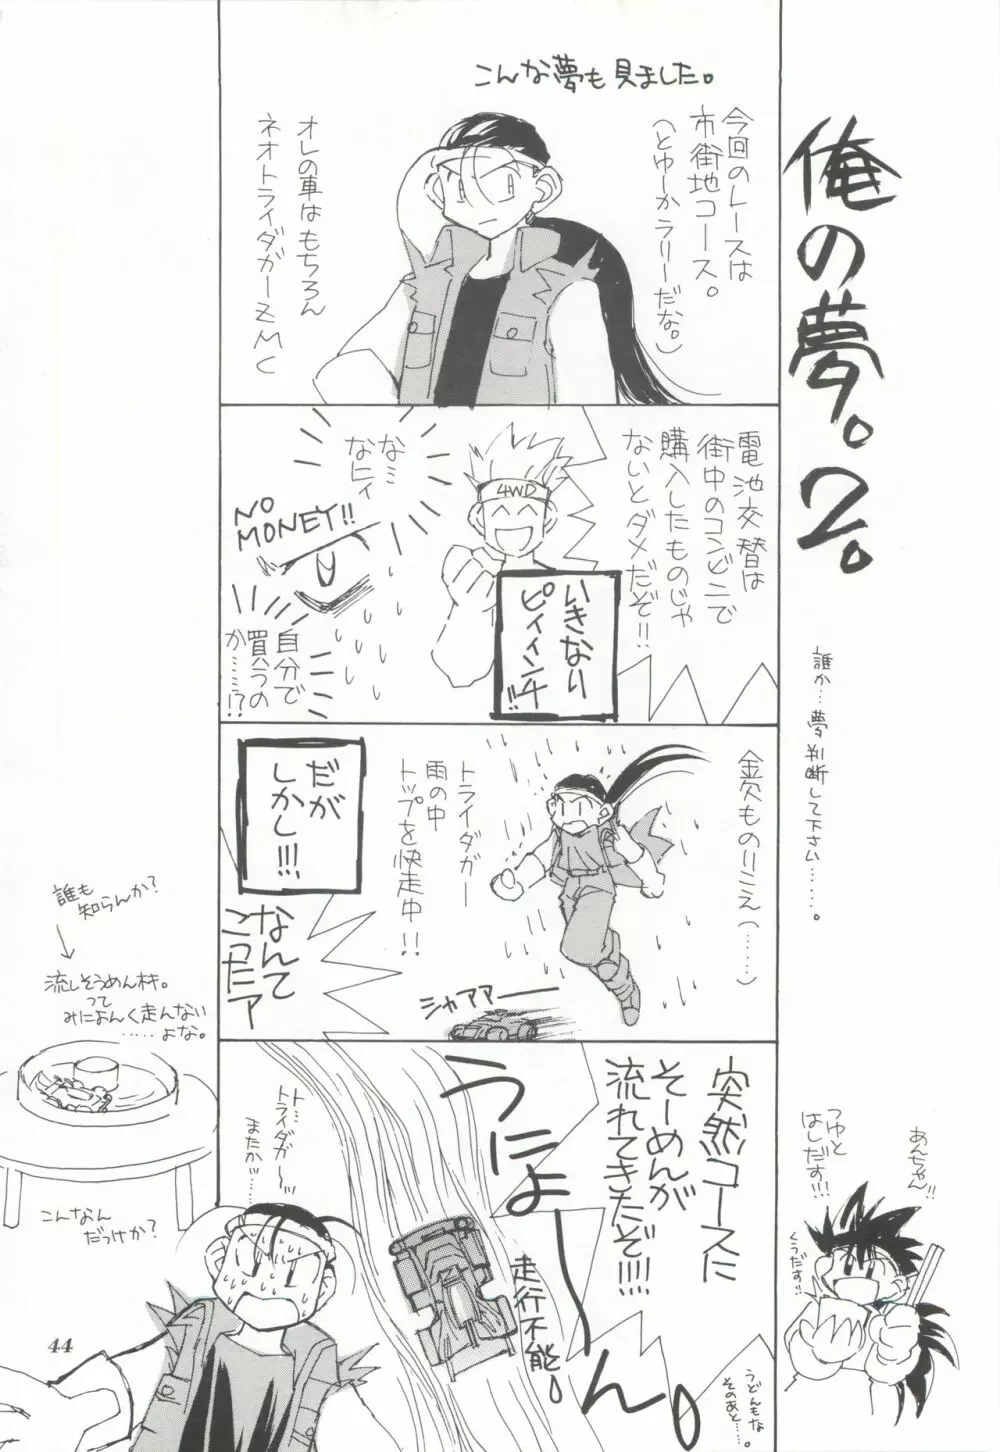 俺の夢。2。
誰か…夢判断して下さい……。
こんな夢も見ました。
今回のレースは
市街地コース。
(とゆーかラリーだな。)
オレの車はもちろん
ネオトライダガーZMC
電池交替は
街中のコンビニで
購入したものじゃ
ないとダメだぞ!!
4WD
いきなり
ピィィンチ!!
なミ
なにィ
NO
MONEY!!
自分で
買うの
か……!?
トライダガー
雨の中
トップを快走中!!
シャアアー
だが
しかし!!!
なんて
こったァ
突然コースに
そーめんが
流れてきたぞ!!!!
うにょーーん。
走行不能。
ト…
トライダガ〜
またか…
うどんもな
そのあと…。
あんちゃん!!
つゆと
はしだす!!!
くうだす!!
誰も
知らんか?
流しそうめん村。
って
みによんく走んない
……よな。
こんなん
だっけか?
44